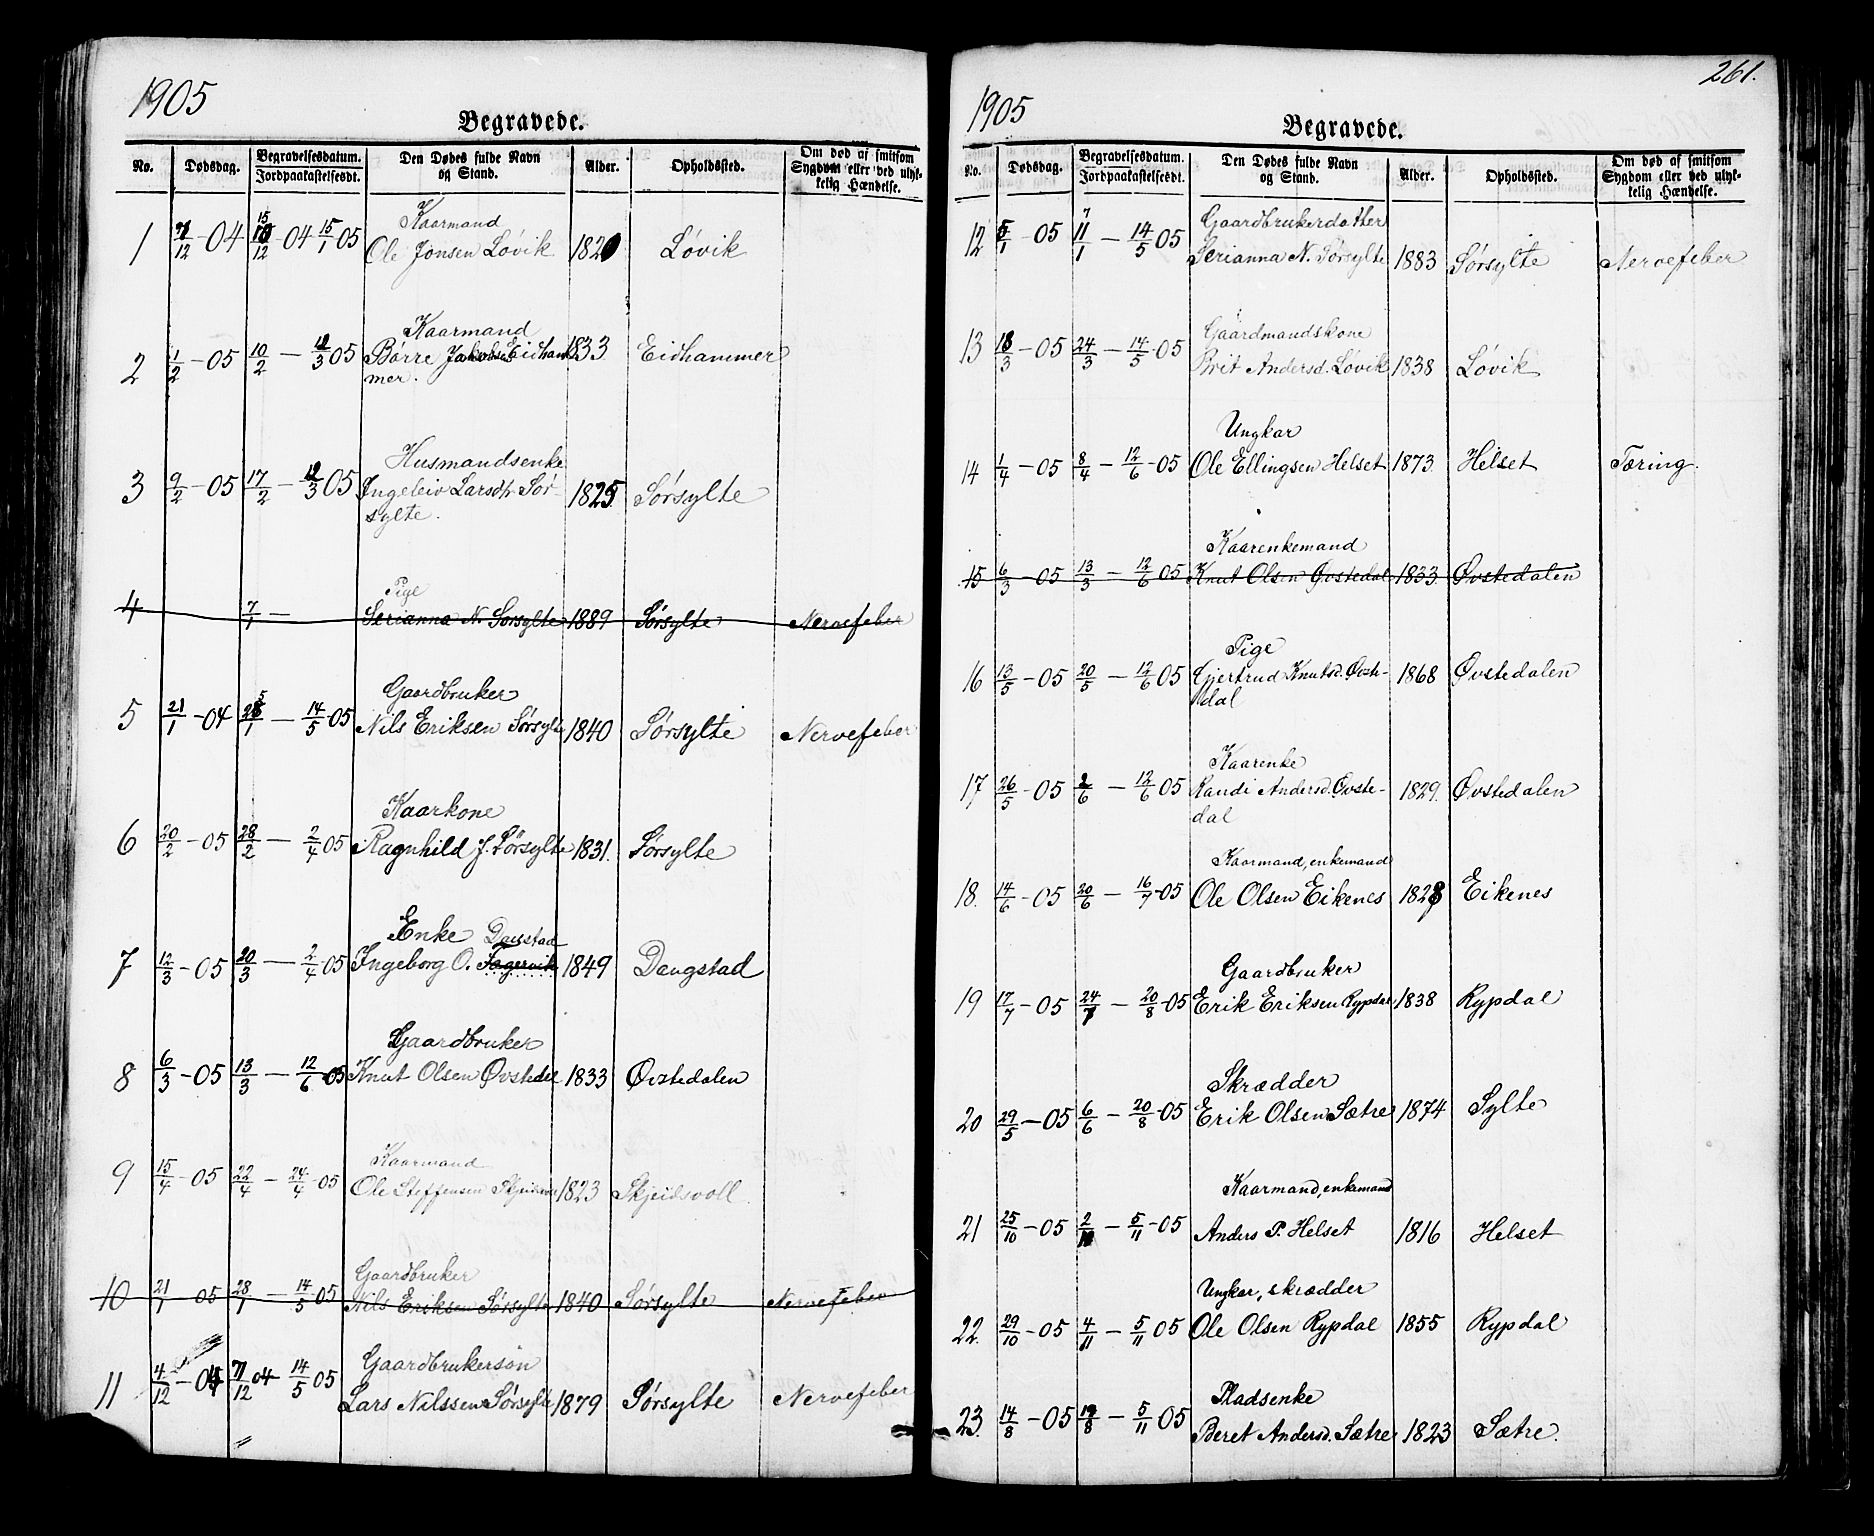 1905
Begravede.
No. Dødsdag. Begravelsesdatum. Jordpaakastelsesdt. Den Dødes fulde Navn og Stand. Alder. Opholdssted. Om død af smitsom Sygdom eller ved ulykkelig Hændelse.
Kaarmand
1 7/12-04 15/12 04 15/1 05 Ole Jonsen Løvik 1820 Løvik
Kaarmand
2 1/2-05 10/2 — 12/3 05 Børre Jakobs. Eidham- 1833 Eidhammer
mer.
Husmandsenke
3 9/2-05 17/2 — 12/3 05 Ingeleiv Larsdtr Sør- 1825. Sørsylte
sylte.
Pige
4 7/1 — Serianna N. Sørsylte 1889 Sørsylte Nervefeber
Gaardbruker
5 21/1-04 25/1 — 14/5 05 Nils Eriksen Sørsylte 1840 Sørsylte Nervefeber
Kaarkone
6 20/2-05 28/2 — 2/4 05 Ragnhild J. Sørsylte 1831. Sørsylte
Enke Daugstad
7 12/3-05 20/3 — 2/4 05 Ingeborg O. Fagervik 1849 Daugstad
Gaardbruker
8 6/3-05 13/3 — 12/6 05 Knut Olsen Øvstedal 1833 Øvstedalen
Kaarmand
9 15/4-05 22/4 — 24/4-05 Ole Steffensen Skjeidsvoll 1823 Skjeidsvoll
Gaardbruker
10 21/1 05 28/1 — 14/5 05 Nils Eriksen Sørsylte 1840 Sørsylte Nervefeber
Gaardbrukersøn
11 4/12-04 11/12 04 14/5 05 Lars Nilssen Sørsylte 1879 Sørsylte Nervefeber
261.
1905
Begravede.
No. Dødsdag. Begravelsesdatum. Jordpaakastelsesdt. Den Dødes fulde Navn og Stand. Alder. Opholdssted. Om død af smitsom Sygdom eller ved ulykkelig Hændelse.
7 Gaardbrukerdatter
12 5/1-05 11/1 — 14/5 05 Serianna N. Sørsylte 1883 Sørsylte Nervefeber
Gaardmandskone
13 18/3-05 24/3 — 14/5-05 Brit Andersd. Løvik 1838 Løvik
Ungkar
14 1/4-05 8/4 — 12/6-05 Ole Ellingsen Helset 1873. Helset Tæring.
Kaarenkemand
15 6/3-05 13/3 — 12/6 05 Knut Olsen Øvstedal 1833 Øvstedalen
Pige
16 13/5-05 20/5 — 12/6 05 Gjertrud Knutsd. Øvste- 1868 Øvstedalen
dal
Kaarenke
17 26/5-05 2/6 — 12/6 05 Randi Andersd. Øvste- 1829. Øvstedalen
dal
Kaarmand, enkemand
18. 14/6-05 20/6 — 16/7-05 Ole Olsen Eikenes 1828 Eikenes
Gaardbruker
19 17/7-05 24/7 — 20/8-05 Erik Eriksen Rypdal 1838 Rypdal
Skrædder
20 29/5-05 6/6 — 20/8-05 Erik Olsen Sætre 1874 Sylte
Kaarmand, enkemand
21 25/10-05 2/11 — 5/11-05 Anders P. Helset 1816 Helset
Ungkar, skrædder
22. 29/10-05 4/11 — 5/11 05 Ole Olsen Rypdal 1855 Rypdal
Pladsenke
23. 14/8-05 19/8 — 5/11 05 Beret Andersd. Sætre 1823 Sætre.